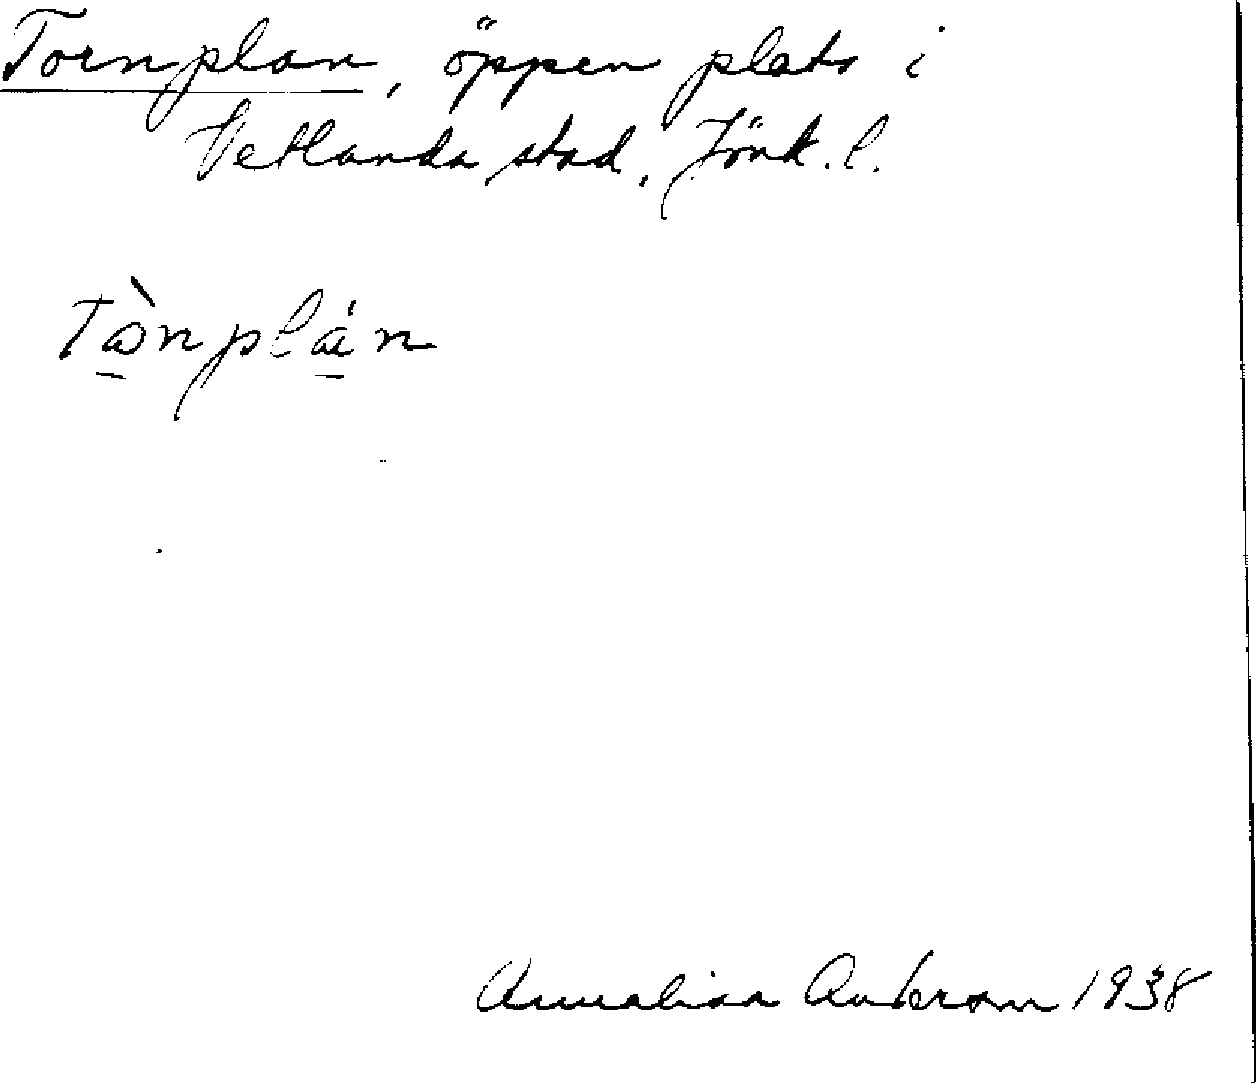 Tornplan, öppen plats i
Vetlanda stad, Jönk. l.
Tὼnplán
Annalisa Anderson 1938